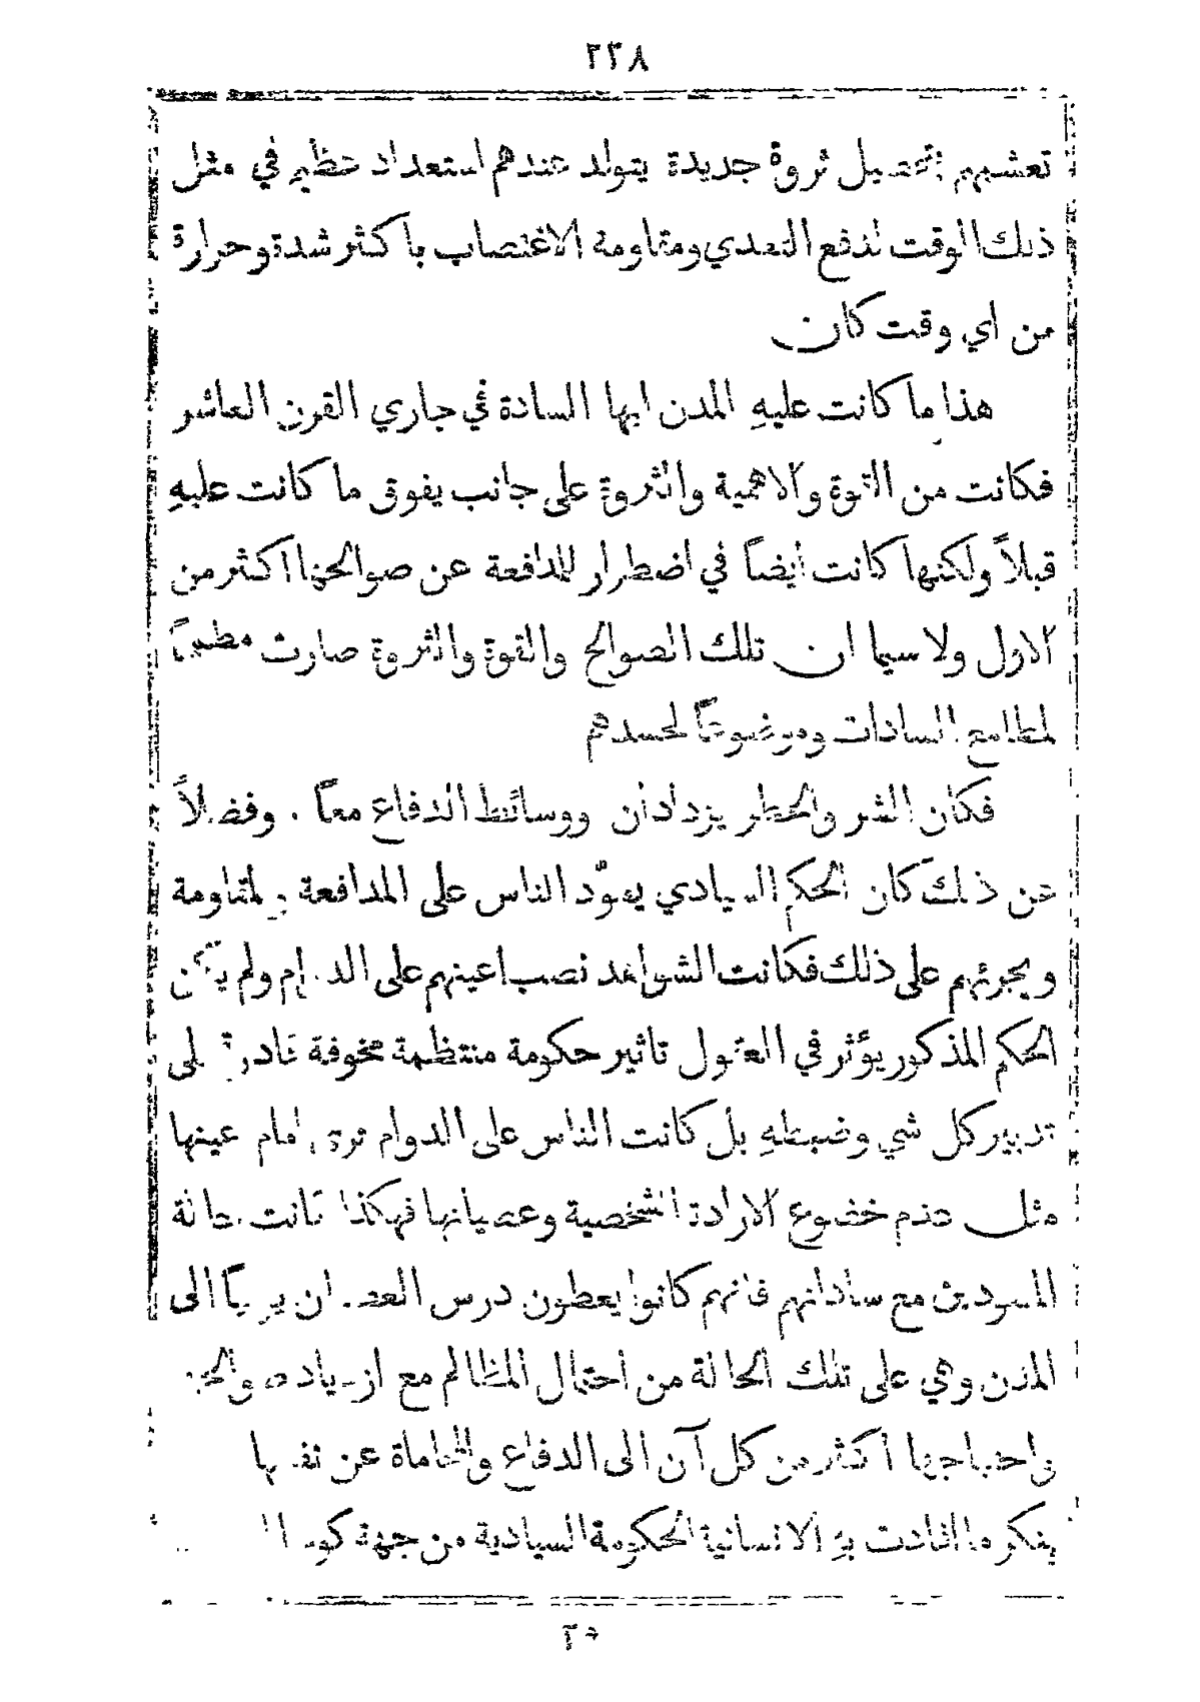 ٢٣٨
تعشيهم بتحصيل ثروة جديدة يتولد عندهم استعداد عظيم في مثل
ذلك الوقت لدفع التعدي ومقاومة الاغتصاب باكثر شدة وحرارة
من اي وقت كان
هذا ما كانت عليهِ المدن ايها السادة في جاري القرن العاشر
فكانت من القوة والاهمية والثروة على جانب يفوق ما كانت عليهِ
قبلاً ولكنها كانت ايضاً في اضطرار للمدافعة عن صوالحها اكثر من
الاول ولا سيما ان تلك الصوالح والقوة والثروة صارت مطمعاً
لمطامع السادات وموضوعاً لحسدهم
فكان الشر والخطر يزدادان ووسائط الدفاع معاً . وفضلاً
عن ذلك كان الحكم السيادي يعوّد الناس على المدافعة والمقاومة
ويجرئهم على ذلك فكانت الشواهد نصب اعينهم على الدوام ولم يكن
الحكم المذكور يؤثر في العقول تاثير حكومة منتظمة مخوفة قادرة على
تدبير كل شي وضبطهِ بل كانت الناس على الدوام ترى امام عينها
مثل عدم خضوع الارادة الشخصية وعصيانها فهكذا كانت حالة
المسودين مع ساداتهم فانهم كانوا يعطون درس العصيان يومياً الى
المدن وهي على تلك الحالة من احتمال المظالم مع ازدياد
واحتياجها اكثر من كل آن الى الدفاع والمحاماة عن نفسها
ينكر ما افادت بهِ الانسانية الحكومة السيادية من جهة
٣٠